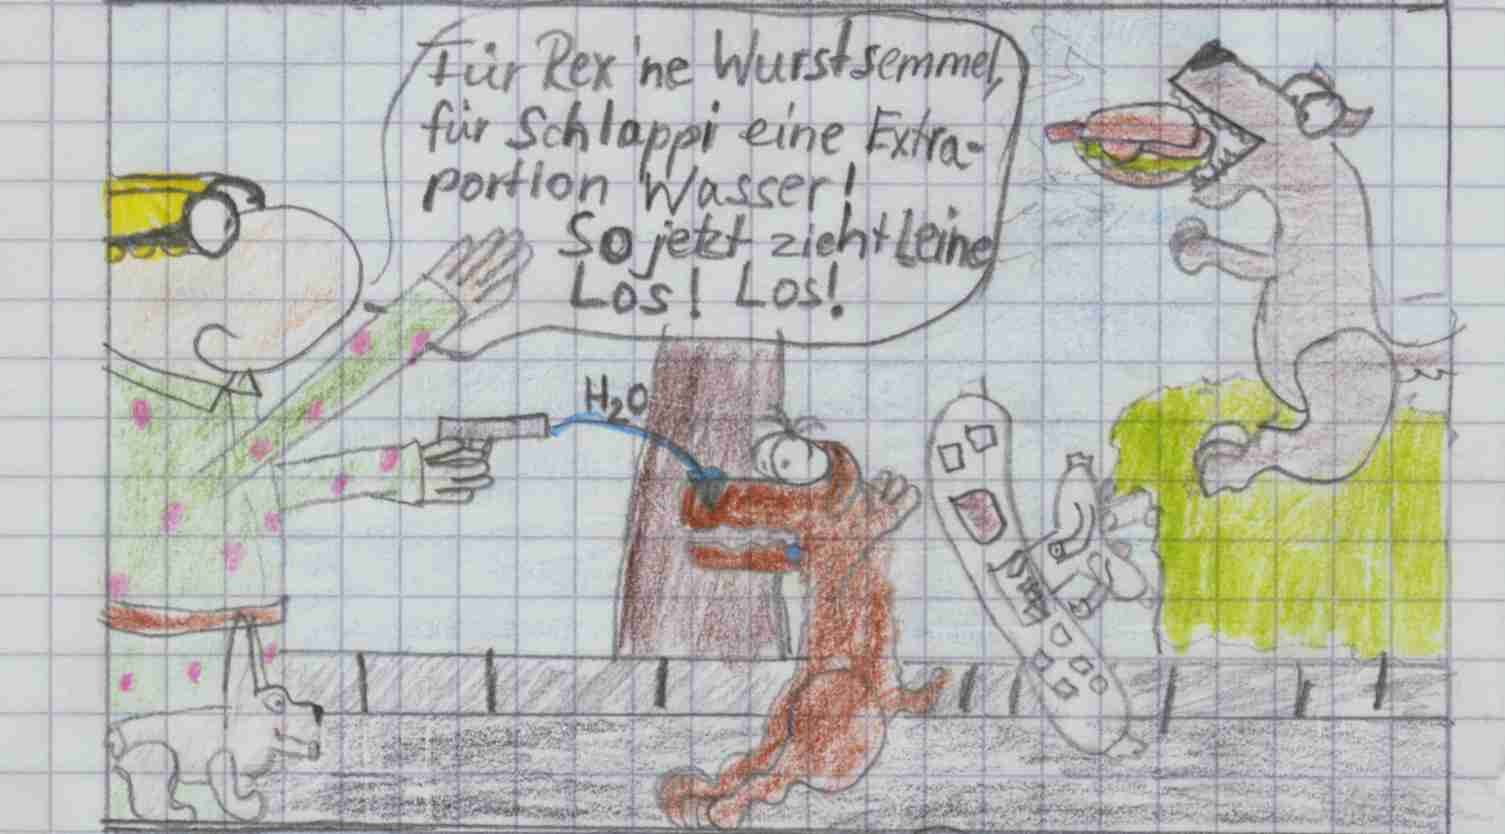 Für Rex 'ne Wurstsemmel,
für Schlappi eine Extra-
portion Wasser!
So jetzt zieht Leine
Los! Los!
H₂O